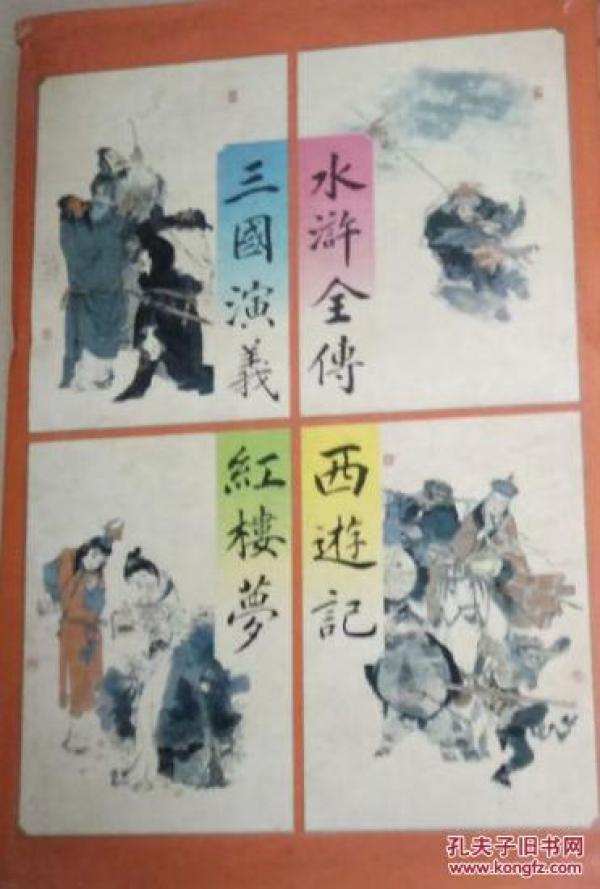 三國演義
水滸全傳
紅樓夢
西遊記
孔夫子旧书网
www.kongfz.com